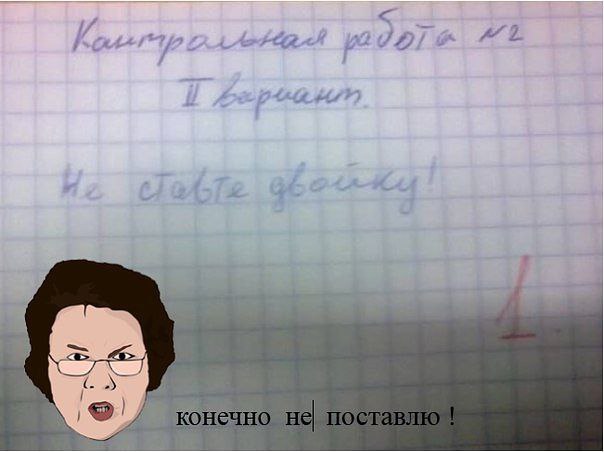 Кантрольная работа №2
II вариант.
Не ставте двойку!
1.
конечно не поставлю !